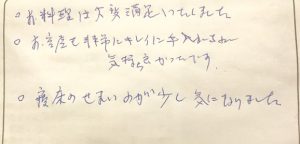 ○ お料理は大変満足いたしました
○ お部屋も非常にきれいに手入れされ
気持良かったです。
○ 寝床のせまいのが少し気になりました